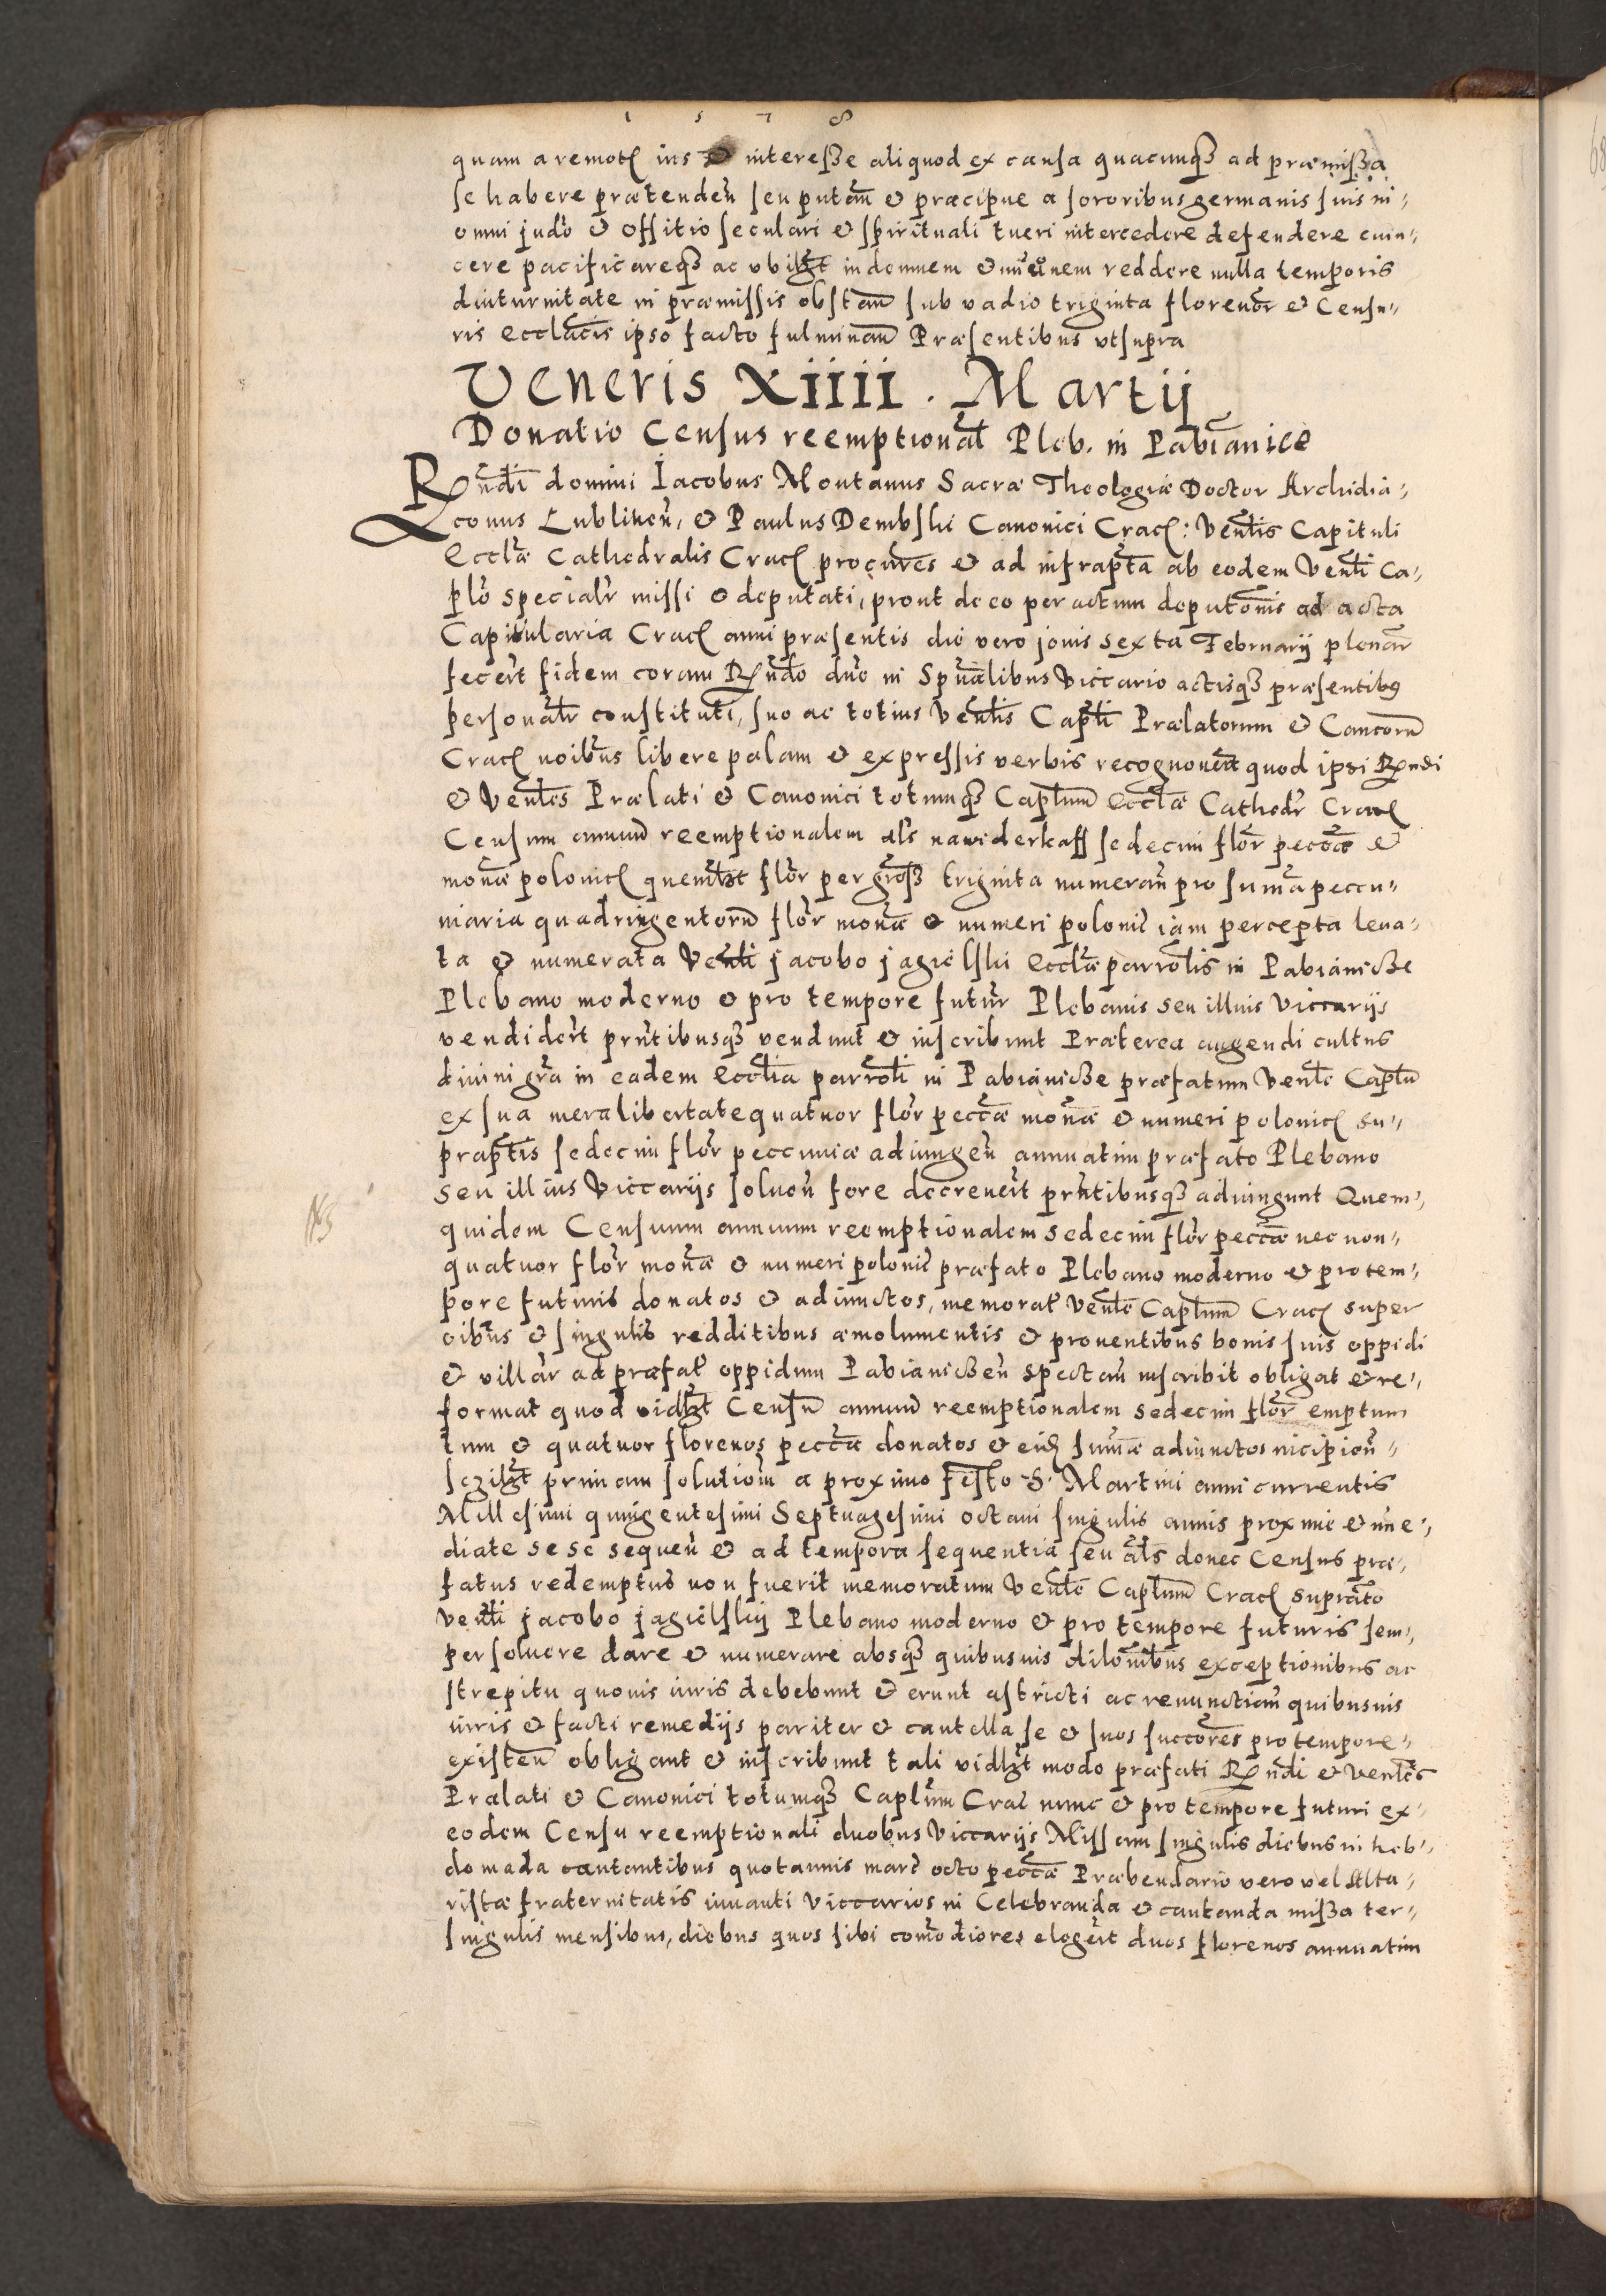 1 5 7 8
quam a remot(is) ius et interesse aliquod ex causa quacunq(ue) ad præmissa
se habere prætenden̄ seu putan̄ et præcipue a sororibus germanis suis in
omni judō et offitio seculari et spirituali tueri intercedere defendere euin„
cere pacificareq(ue) ac vbilz̄t indemnem et im̄unem reddere nulla temporis
diuturnitate in præmissis obstan̄ sub vadio triginta florenor̄ et Censu„
ris Eccl̄acis ipso facto fulminan̄ Præsentibus vtsupra
Veneris XIIII. Martij
Donatio Census reemptional̄ Pleb. in Pabianice
Rn̄di domini Iacobus Montanus Sacræ Theologiæ Doctor Archidia„
conus Lublinen̄, et Paulus Dembski Canonici Crac: Ven̄lis Capituli
Eccl̄æ Cathedralis Crac procur̄es et ad infrapt̄a ab eodem Ven̄li Ca„
pl̄o specialr̄ missi et deputati, prout de eo per actum deputōnis ad acta
Capitularia Crac anni præsentis die vero jouis sexta Februarij plenar̄
fecer̄t fidem coram Rn̄do dn̄o in Spūalibus Viccario actisq(ue) præsentibus
personalr̄ constituti, suo ac totius Ven̄lis Capl̄i Prælatorum et Cancorū
Crac noibus libere palam et expressis verbis recognouer̄t quod ipsi Rn̄di
et Ven̄les Prælati et Canonici totumq(ue) Capl̄um Eccl̄æ Cathedr̄ Crac
Censum annuū reemptionalem als̄ nawiderkaff sedecim flor̄ peccæ et
mon̄æ polonic quemlz̄t flor̄ per gross triginta numeran̄ pro sum̄a peccu„
niaria quadringentorū flor̄ mon̄æ et numeri polonic̄ iam percepta leua„
ta et numerata Ven̄li jacobo jagielski Eccl̄æ parrōlis in Pabianicze
Plebano moderno et pro tempore futur̄ Plebanis seu illius Viccarijs
vendider̄t prn̄tibusq(ue) vendunt et inscribunt Præterea augendi cultus
diuini gr̄a in eadem Eccl̄ia parrōli in Pabianicze præfatum Ven̄le Capl̄m
ex sua mera libertate quatuor flor̄ peccæ mon̄æ et numeri polonic su„
prapt̄is sedecim flor̄ peccuniæ adiungen̄ annuatim præfato Plebano
seu illius Viccarijs soluen̄ fore decreuer̄t prn̄tibusq(ue) adiungunt Quem„
NB
quidem Censuum annuum reemptionalem sedecim flor̄ peccæ nec non„
quatuor flor̄ mon̄æ et numeri polonic̄ præfato Plebano moderno et pro tem„
pore futuris donatos et adiunctos, memorat̄ Ven̄le Capl̄um Crac super
oibus et singulis redditibus æmolumentis et prouentibus bonis suis oppidi
et villar̄ ad præfat̄ oppidum Pabianiczen̄ spectan̄ inscribit obligat et re„
format quod vidlz̄t Censū annuū reemptionalem sedecim flor̄ emptum
tum et quatuor florenos peccæ donatos et eid̄ sum̄æ adiunctos incipien̄„
sczilz̄t primam solutiōm a proximo Festo S. Martini anni currentis
Millesimi quingentesimi Septuagesimi octaui singulis annis proxime et im̄e„
diate sese sequen̄ et ad tempora sequentia seu als̄ donec Census præ„
fatus redemptus non fuerit memoratum Ven̄le Capl̄um Crac suprat̄o
Ven̄li jacobo jagielskij Plebano moderno et pro tempore futuris sem„
per soluere dare et numerare absq(ue) quibusuis dilōnibus exceptionibus ac
strepitu quouis iuris debebunt et erunt astricti ac renunctian̄ quibusuis
iuris et facti remedijs pariter et cautella se et suos succores̄ pro tempore„
existen̄ obligant et inscribunt tali vidlz̄t modo præfati Rn̄di et Ven̄les
Prælati et Canonici totumq(ue) Capl̄um Crac̄ nunc et pro tempore futuri ex„
eodem Censu reemptionali duobus Viccarijs Missam singulis diebus in heb„
domada cantantibus quotannis marc̄ octo peccæ Præbendario vero vel Alta„
ristæ fraternitatis iuuanti Viccarios in Celebranda et cantanda missa ter„
singulis mensibus, diebus quos sibi com̄odiores eleger̄it duos florenos annuatim